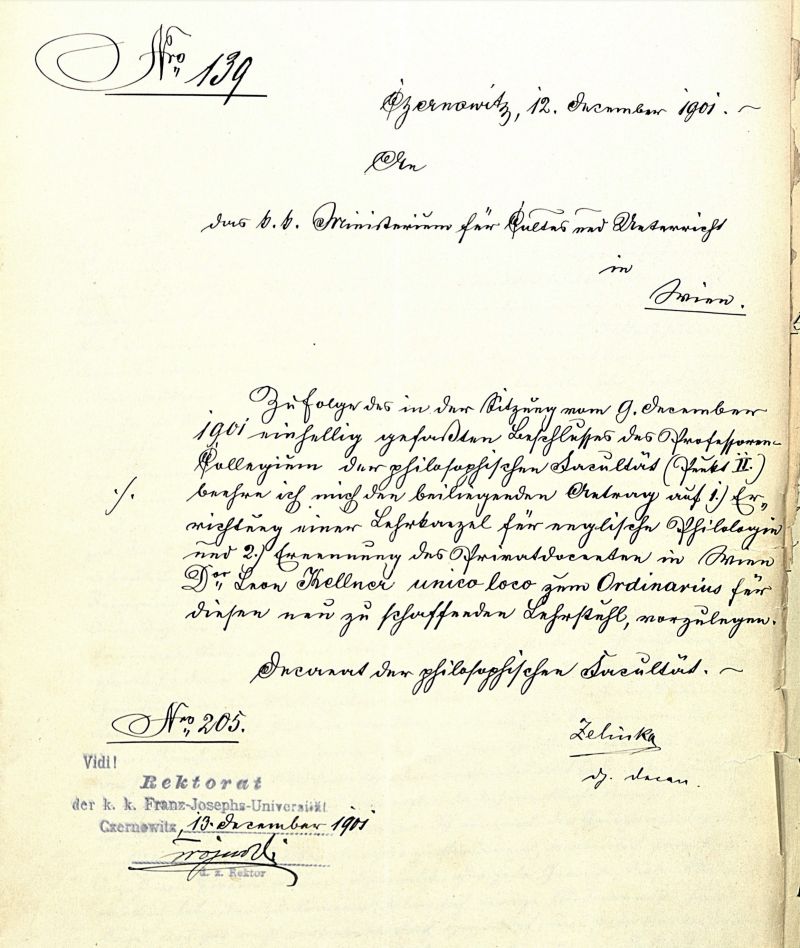 Nro 139
Czernowitz, 12. December 1901.
An
das k. k. Ministerium für Cultus und Unterricht
in
Wien.
Zufolge des in der Sitzung vom 9. December
1901 einhellig gefaßten Beschlusses des Professoren-
Collegium der philosophischen Facultät (Punkt II.)
./. beehre ich mich den beiliegenden Antrag auf 1.) Er-
richtung einer Lehrkanzel für englische Philologie
und 2.) Ernennung des Privatdocenten in Wien
Dor Leon Kellner unico loco zum Ordinarius für
diesen neu zu schaffenden Lehrstuhl, vorzulegen.
Decanat der philosophischen Facultät.
Nro 205.
Zelinka
dz. Decan.
Vidi!
Rektorat
der k. k. Franz-Josephs-Universität
Czernowitz, 13. December 1901
d. z. Rektor